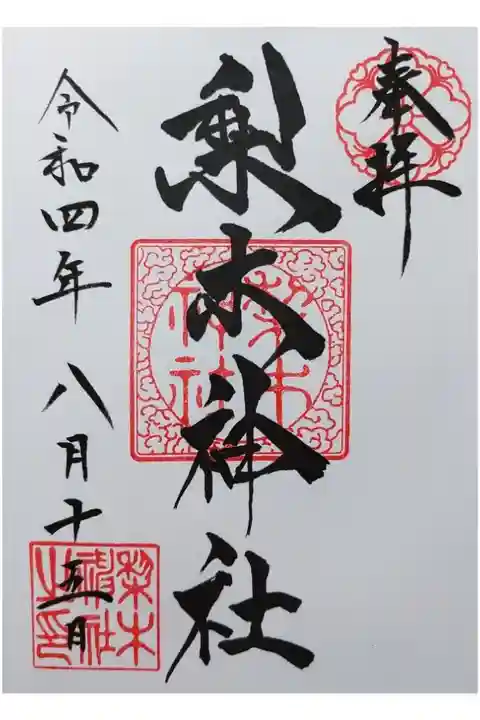 奉拝
梨木神社
令和四年 八月十五日
梨木
神社
梨木
神社
之印